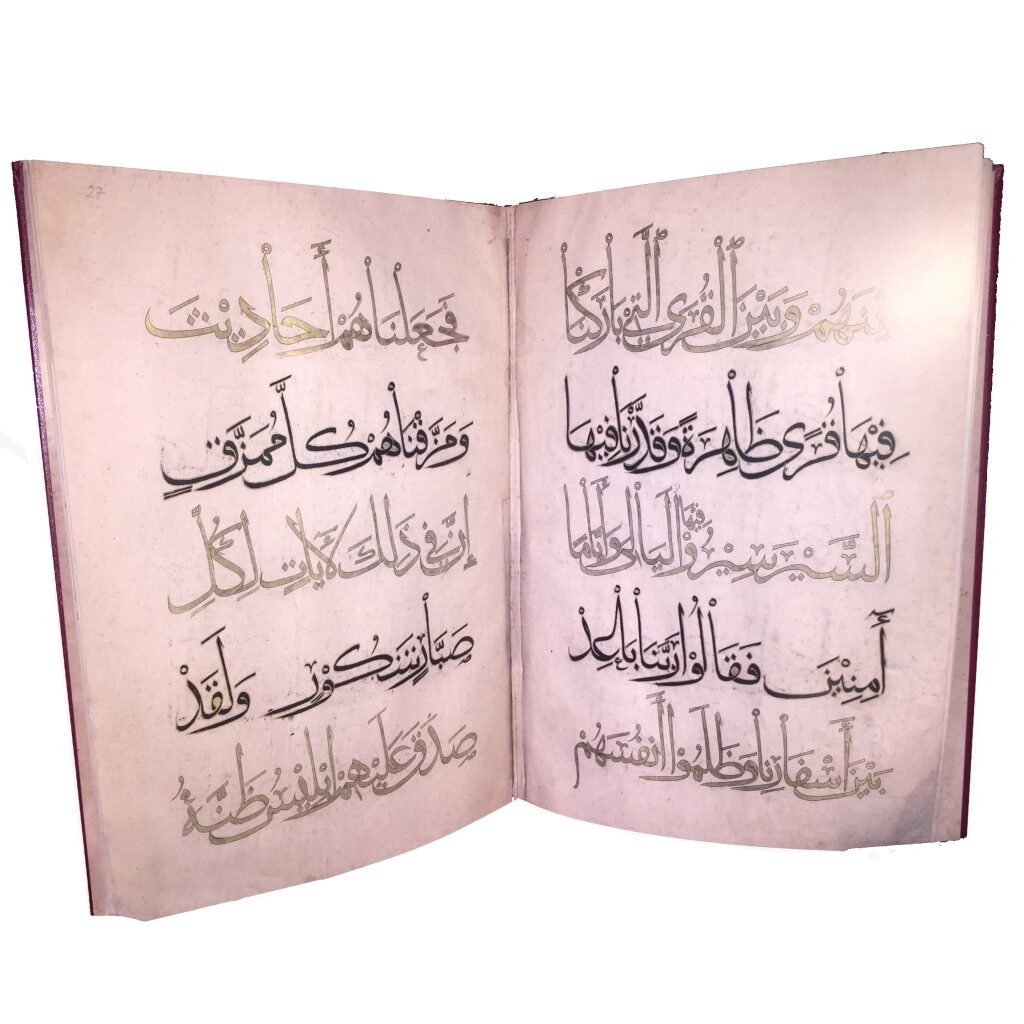 بَيْنَهُمْ وَبَيْنَ الْقُرَى الَّتِي بَارَكْنَا
فِيْهَا قُرًى ظَاهِرَةً وَقَدَّرْنَا فِيْهَا
السَّيْرَ سِيْرُوْا فِيْهَا لَيَالِيَ وَأَيَّامًا
آمِنِيْنَ فَقَالُوْا رَبَّنَا بَاعِدْ
بَيْنَ أَسْفَارِنَا وَظَلَمُوْا أَنْفُسَهُمْ
27
فَجَعَلْنَاهُمْ أَحَادِيْثَ
وَمَزَّقْنَاهُمْ كُلَّ مُمَزَّقٍ
إِنَّ فِي ذَلِكَ لَآيَاتٍ لِكُلِّ
صَبَّارٍ شَكُوْرٍ وَلَقَدْ
صَدَّقَ عَلَيْهِمْ إِبْلِيْسُ ظَنَّهُ